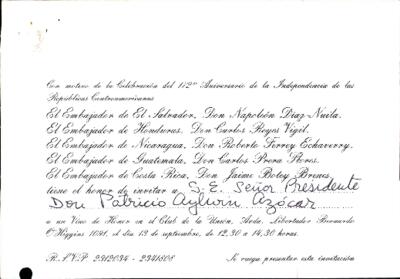 Con motivo de la Celebración del 172º Aniversario de la Independencia de las
Repúblicas Centroamericanas
El Embajador de El Salvador, Don Napoleón Díaz Nuila,
El Embajador de Honduras, Don Carlos Reyes Vigil,
El Embajador de Nicaragua, Don Roberto Ferrey Echaverry,
El Embajador de Guatemala, Don Carlos Prera Flores,
El Embajador de Costa Rica, Don Jaime Botey Brenes,
tiene el honor de invitar a S.E. Señor Presidente
Don Patricio Aylwin Azócar
a un Vino de Honor en el Club de la Unión, Avda. Libertador Bernardo
O'Higgins 1091, el día 13 de septiembre, de 12,30 a 14,30 horas.
R.S.V.P. 2312034 - 2341808 Se ruega presentar esta invitación